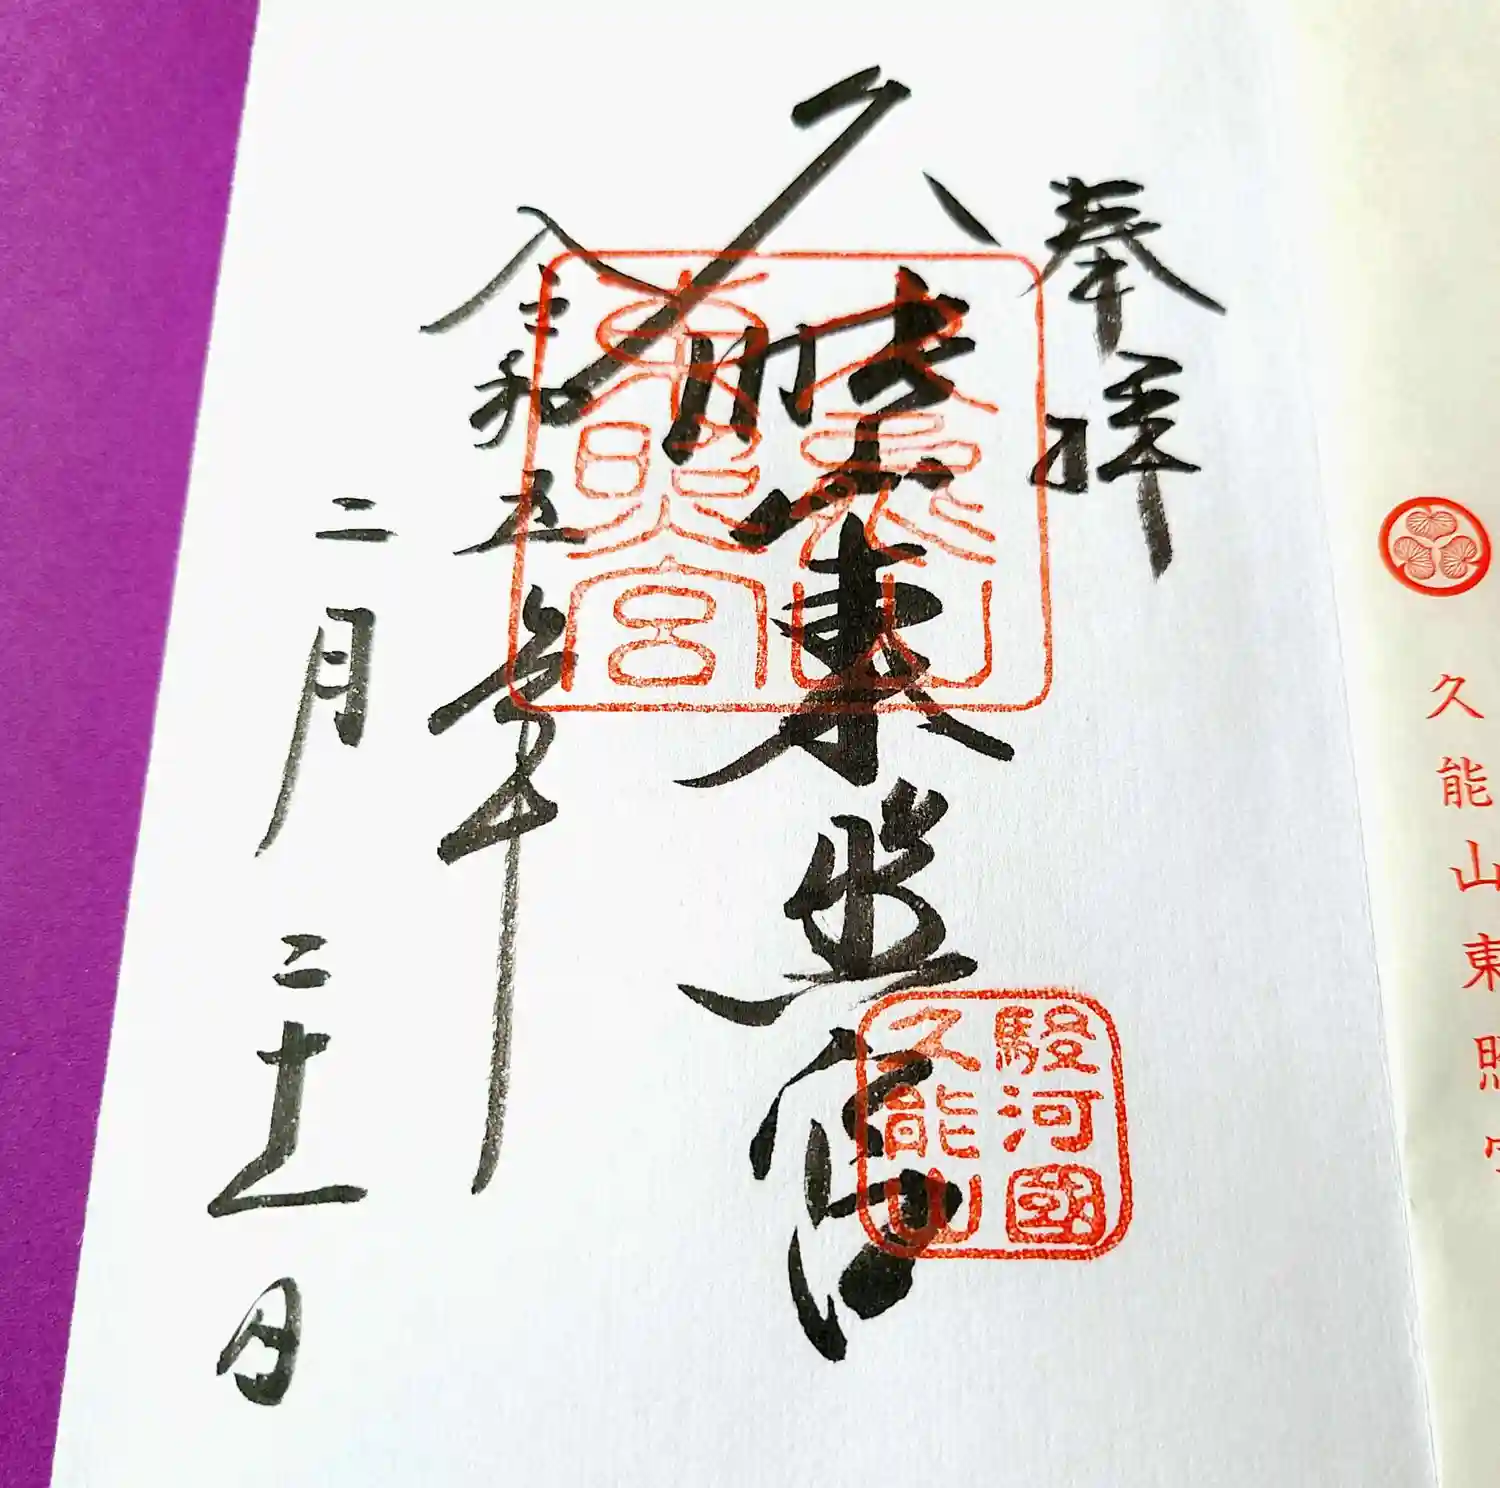 久能山東照
奉拝
久能山東照宮
東照宮
駿河國
久能山
令和五年
二月二十一日